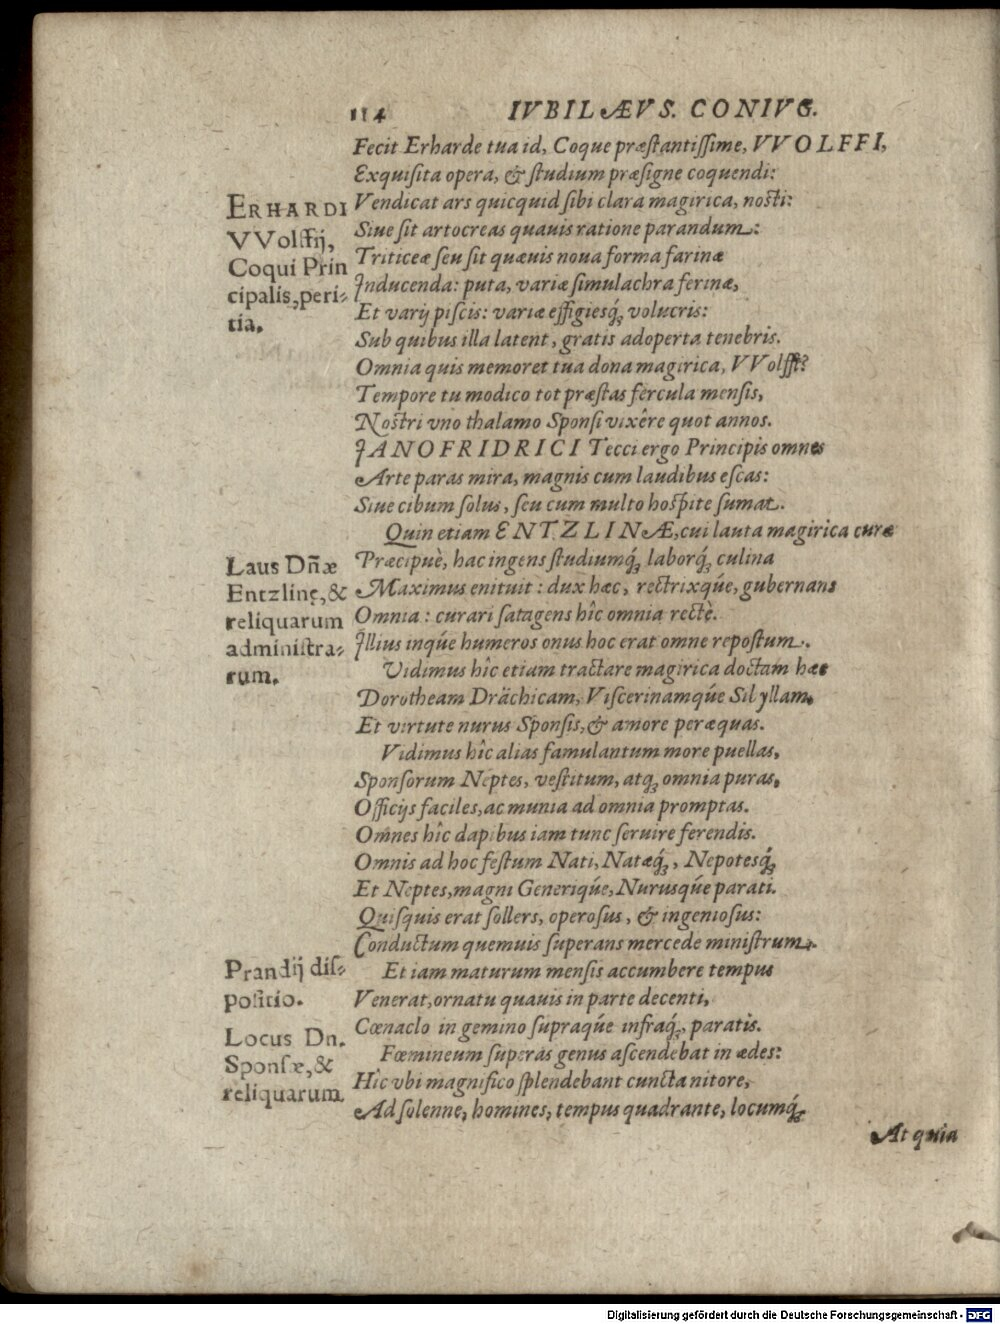 114 IVBILÆVS. CONIVG.
Fecit Erharde tua id, Coque præſtantiſſime, VVOLFFI,
Exquiſita opera, & ſtudium præſigne coquendi:
Vendicat ars quicquid ſibi clara magirica, noſti:
Siue ſit artocreas quauis ratione parandum:
Triticeæ ſeu ſit quæuis noua forma farinæ
Inducenda: puta, variæ ſimulachra ferinæ,
Et varij piſcis: variæ effigieſq́; volucris:
Sub quibus illa latent, gratis adoperta tenebris.
Omnia quis memoret tua dona magirica, VVolfft?
Tempore tu modico tot præſtas fercula menſis,
Noſtri vno thalamo Sponſi vixêre quot annos.
IANOFRIDRICI Tecci ergo Principis omnes
Arte paras mira, magnis cum laudibus eſcas:
Siue cibum ſolus, ſeu cum multo hoſpite ſumat.
Quin etiam ENTZLINÆ, cui lauta magirica curæ
Præcipuè, hac ingens ſtudiumq́; laborq́; culina
Maximus enituit: dux hæc, rectrixq́ue, gubernans
Omnia: curari ſatagens hîc omnia rectè.
Illius inq́ue humeros onus hoc erat omne repoſtum.
Vidimus hîc etiam tractare magirica doctam hæc
Dorotheam Drächicam, Viſcerinamq́ue Sibyllam,
Et virtute nurus Sponſis, & amore peræquas.
Vidimus hîc alias famulantum more puellas,
Sponſorum Neptes, veſtitum, atq; omnia puras,
Officijs faciles, ac munia ad omnia promptas.
Omnes hîc dapibus iam tunc ſeruire ferendis.
Omnis ad hoc feſtum Nati, Natæq́;, Nepoteſq́;
Et Neptes, magni Generiq́ue, Nurusq́ue parati.
Quiſquis erat ſollers, operoſus, & ingenioſus:
Conductum quemuis ſuperans mercede miniſtrum.
Et iam maturum menſis accumbere tempus
Venerat, ornatu quauis in parte decenti,
Cœnaclo in gemino ſupraq́ue infraq́;, paratis.
Fœmineum ſuperas genus aſcendebat in ædes:
Hîc vbi magnifico ſplendebant cuncta nitore,
Ad ſolenne, homines, tempus quadrante, locumq́;
At quia
ERHARDI
VVolffij,
Coqui Prin
cipalis, peri-
tia.
Laus Dñæ
Entzlinę, &
reliquarum
adminiſtra-
rum.
Prandij diſ-
poſitio.
Locus Dn.
Sponſæ, &
reliquarum.
Digitalisierung gefördert durch die Deutsche Forschungsgemeinschaft - DFG